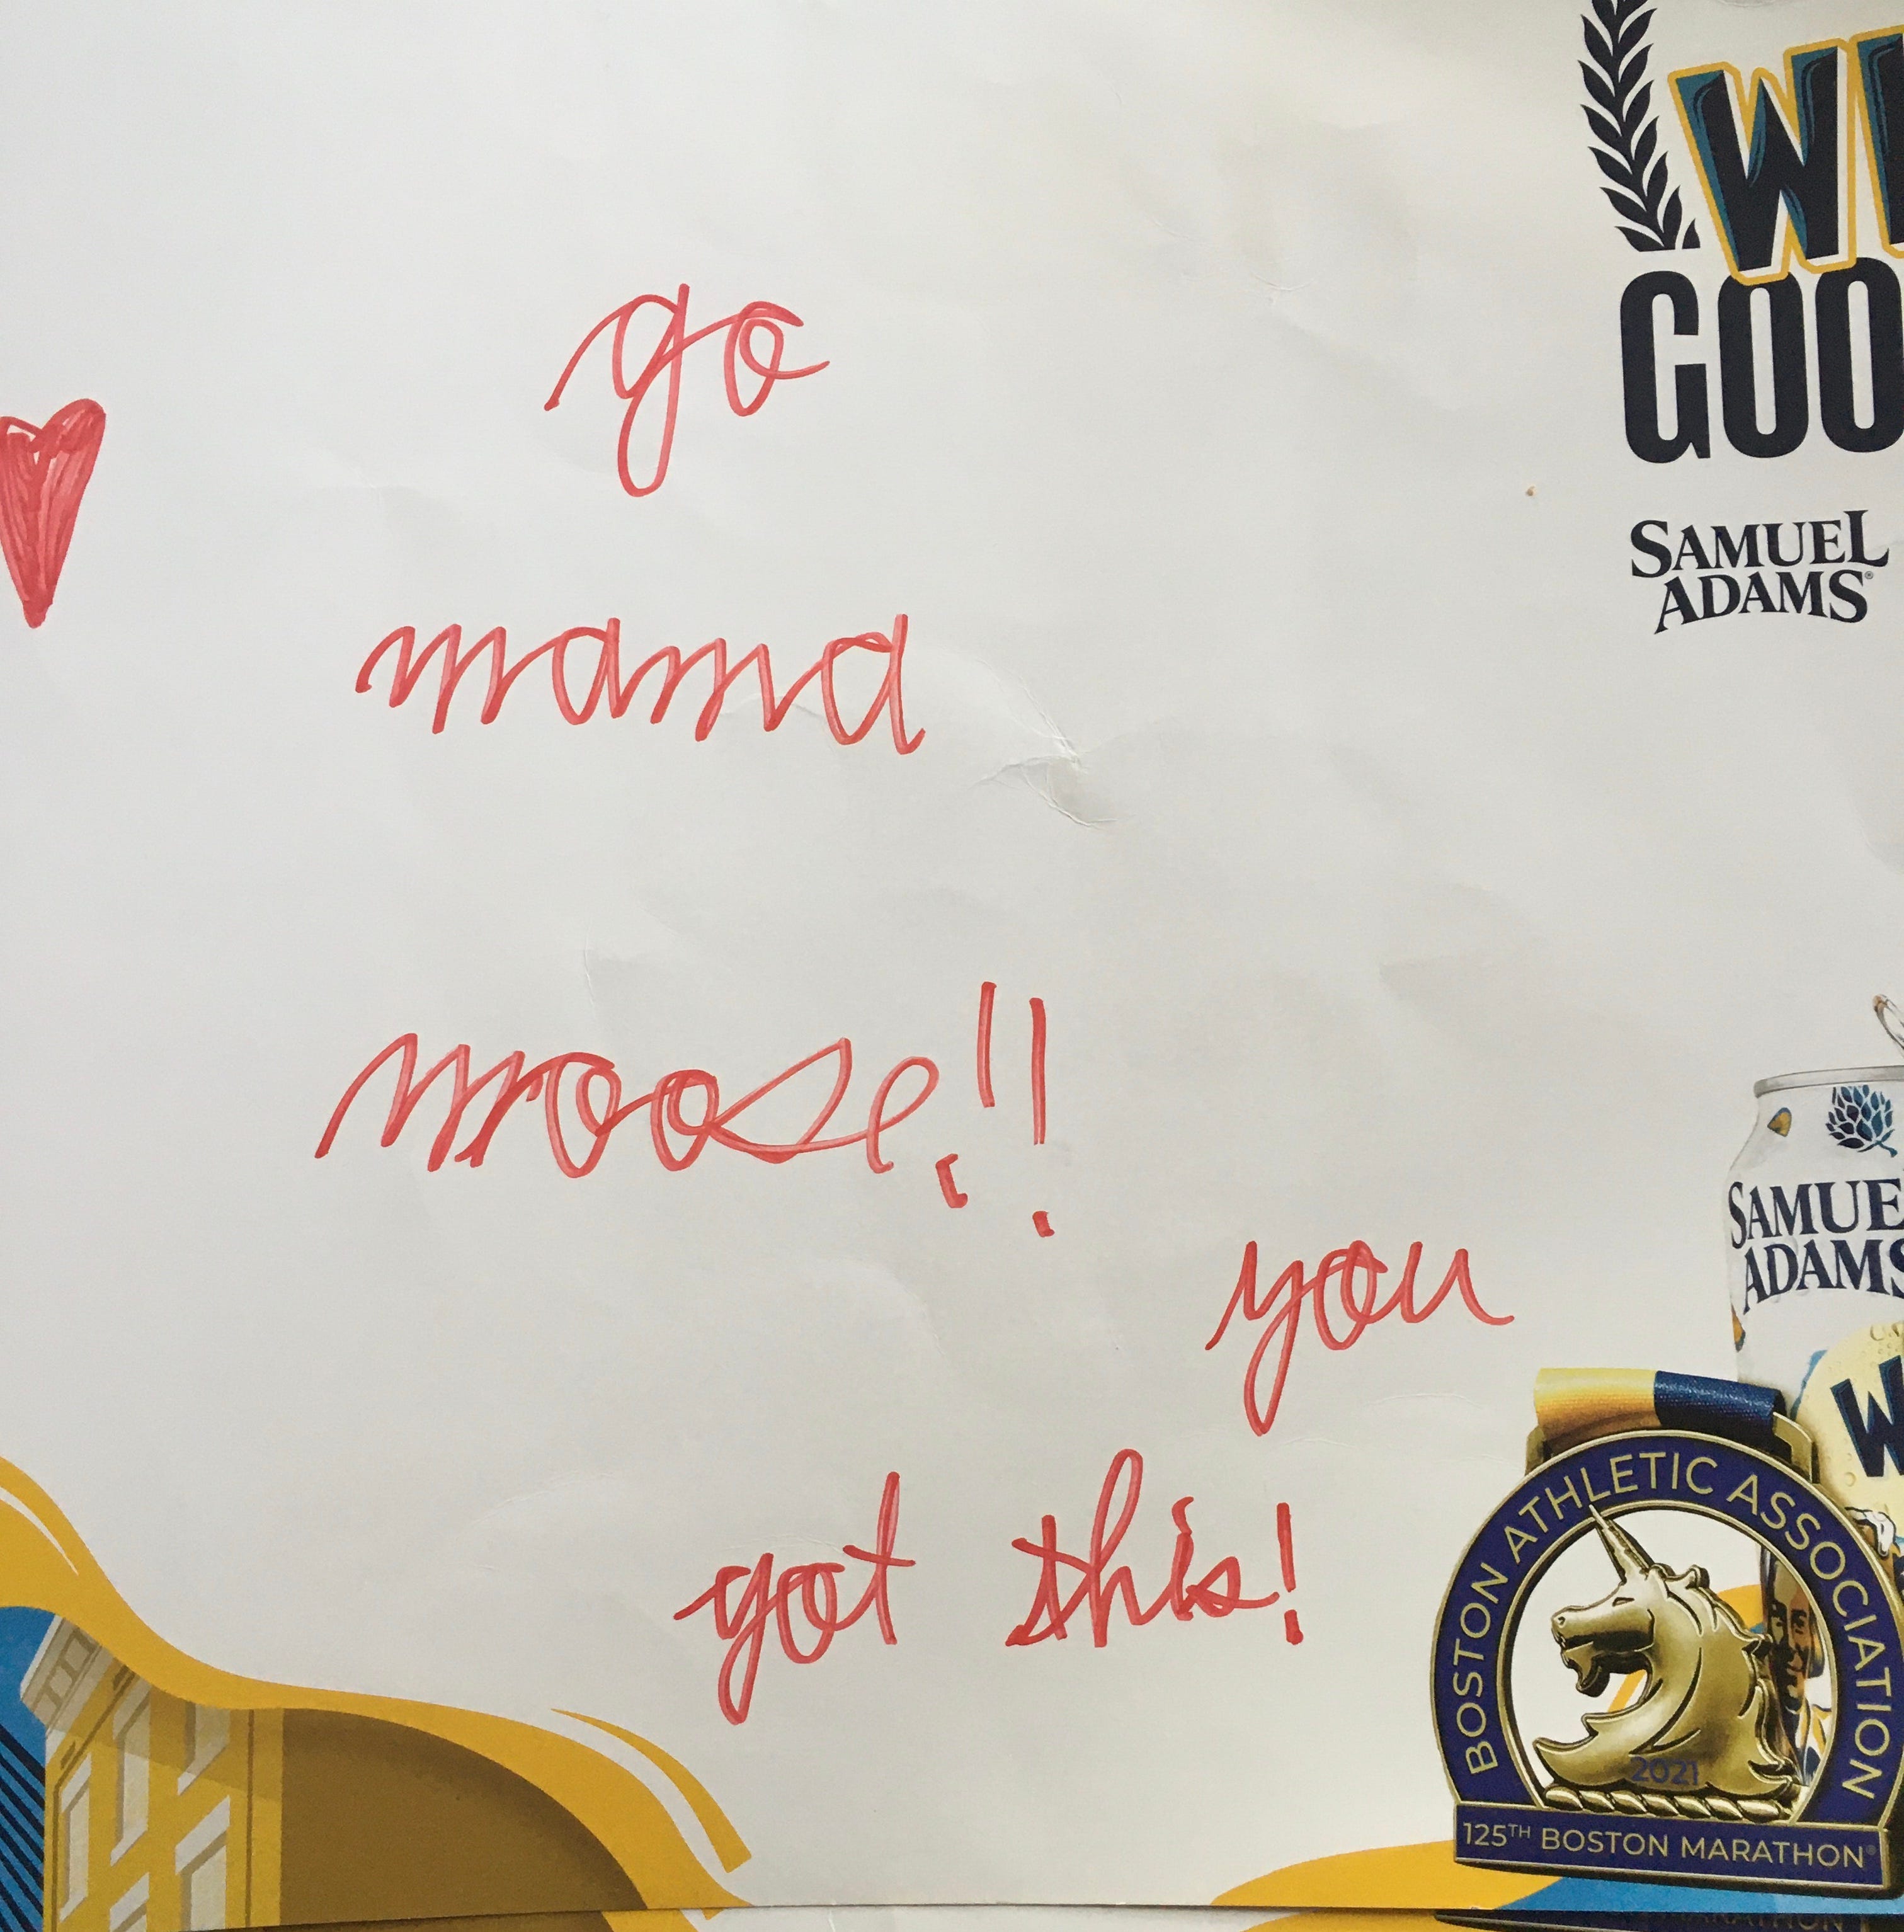 go
mama
moose!!
you
got this!
GOO
SAMUEL
ADAMS®
ADAMS
BOSTON ATHLETIC ASSOCIATION
2021
125TH BOSTON MARATHON®